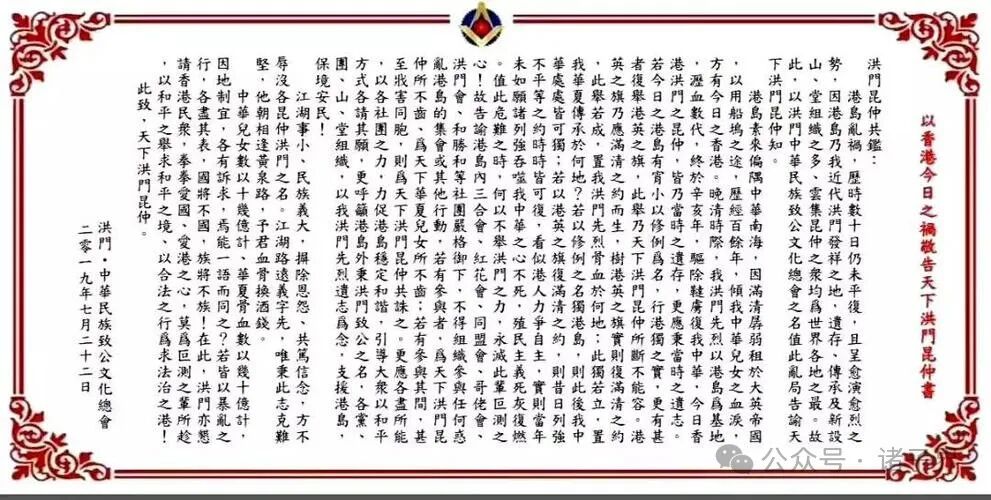 以香港今日之禍敬告天下洪門昆仲書
洪門昆仲共鑑：
港島亂禍，歷時數十日仍未平復，且呈愈演愈烈之
勢，因港島乃我近代洪門發祥之地，遺存、傳承及新設
山、堂組織之多、雲集昆仲之衆均爲世界各地之最。故
此，以洪門中華民族致公文化總會之名值此亂局告諭天
下洪門昆仲知。
港島素來偏隅中華南海，因滿清孱弱租於大英帝國
，以用船塢之途，歷經百餘年，傾我中華兒女之血淚，
方有今日之香港。晚清時際，我洪門先烈以港島爲基地
，瀝血數代，終於辛亥年，驅除韃虜復我中華，今日香
港洪門之昆仲，皆乃當時之遺存，更應秉當時之遺志。
若今日之港島有宵小以修例爲名，行港獨之實，更有甚
者復舉港英之旗，此舉乃天下洪門昆仲所斷不能容。港
英之旗乃應滿清之約而生，樹港英之旗實則復滿清之約
，此舉若成，置我洪門先烈骨血於何地；此獨若立，置
我華夏傳承於何地？若以修例之名獨港島，則此後我中
華處處皆可獨；若以港英之旗復滿清之約，則昔日列強
不平等之約時時皆可復，看似港人力爭自主，實則當年
未如願諸列強吞噬我中華之心不死，殖民主義死灰復燃
。值此危難之時，何以不舉洪門之力，永滅此輩叵測之
心！故告諭港島內三合會、紅花會、同盟會、哥佬會、
洪門會、和勝和等社團嚴格御下，不得組織參與任何惑
亂港島的集會或其他行動，若有參與者，爲天下洪門昆
仲所不齒、爲天下華夏兒女所不齒；若有參與其間，甚
至戕害同胞，則爲天下洪門昆仲共誅之。更應各盡所能
，以各社團之力，力促港島穩定和諧，引導大衆以和平
方式各請其願，更呼籲港島外秉洪門致公之名，各黨、
團、山、堂組織，以我洪門先烈遺志爲念，支援港島，
保境安民！
江湖事小、民族義大，摒除恩怨、共篤信念，方不
辱沒各昆仲洪門之名。江湖路遠義字先，唯秉此志克難
堅，他朝相逢黃泉路，予君血骨換酒錢。
中華兒女數以十幾億計、華夏骨血數以幾十億計，
因地制宜，各有訴求，焉能一語而同之？若皆以暴亂之
行，各盡其表，國將不國，族將不族！在此，洪門亦懇
請香港民衆，拳拳愛國、愛港之心，莫爲叵測之輩所趁
，以和平之舉求和平之境、以合法之行爲求法治之港！
此致，天下洪門昆仲。
洪門·中華民族致公文化總會
二零一九年七月二十二日
公众号·诸